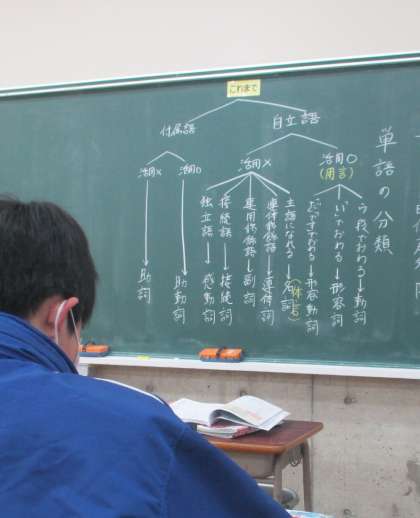 これまで
単語の分類
自立語
活用○
(用言)
う段でおわる→動詞
いでおわる→形容詞
だ・ですでおわる→形容動詞
活用×
主語になれる→名詞
(体言)
連体修飾語→連体詞
連用修飾語→副詞
接続語→接続詞
独立語→感動詞
付属語
活用○
助動詞
活用×
助詞